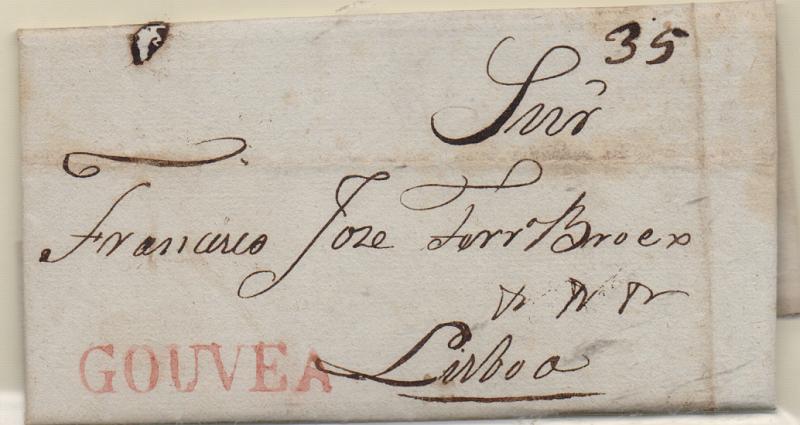 35
Snr
Francisco Joze Ferr Broex
GOUVEA Lisboa